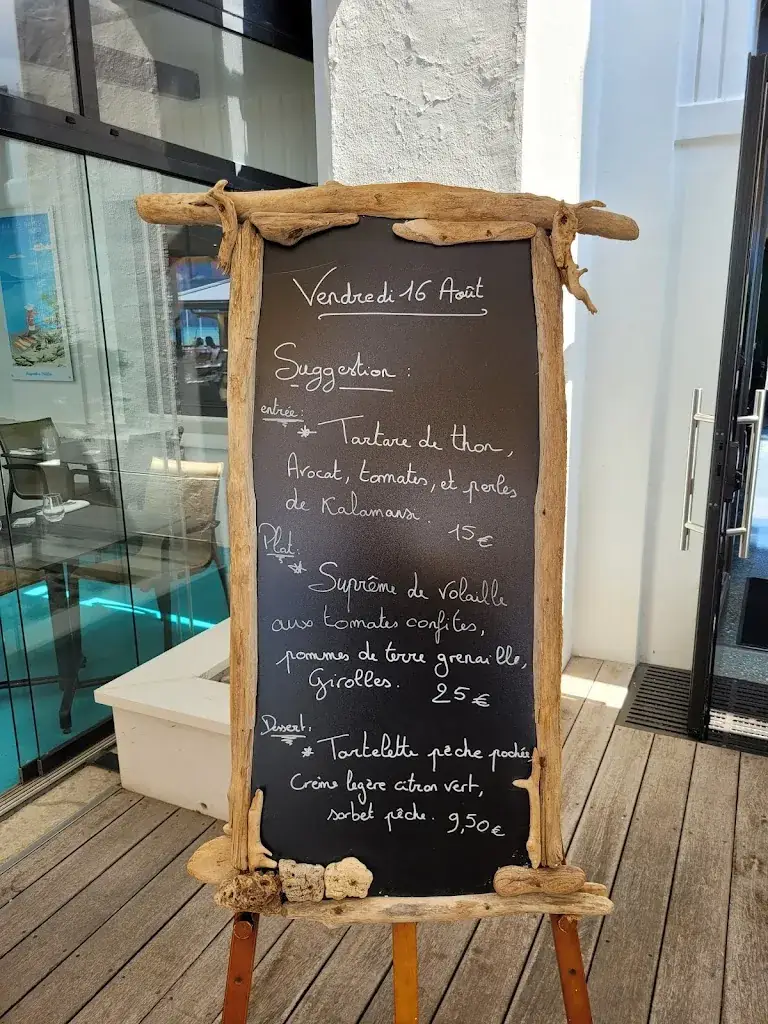 Vendredi 16 Août
Suggestion :
entrée :
* Tartare de thon,
Avocat, tomates, et perles
de Kalamansi. 15€
Plat :
* Suprême de volaille
aux tomates confites,
pommes de terre grenaille,
Girolles. 25€
Dessert :
* Tartelette pêche pochée,
Crème legère citron vert,
sorbet pêche. 9,50€